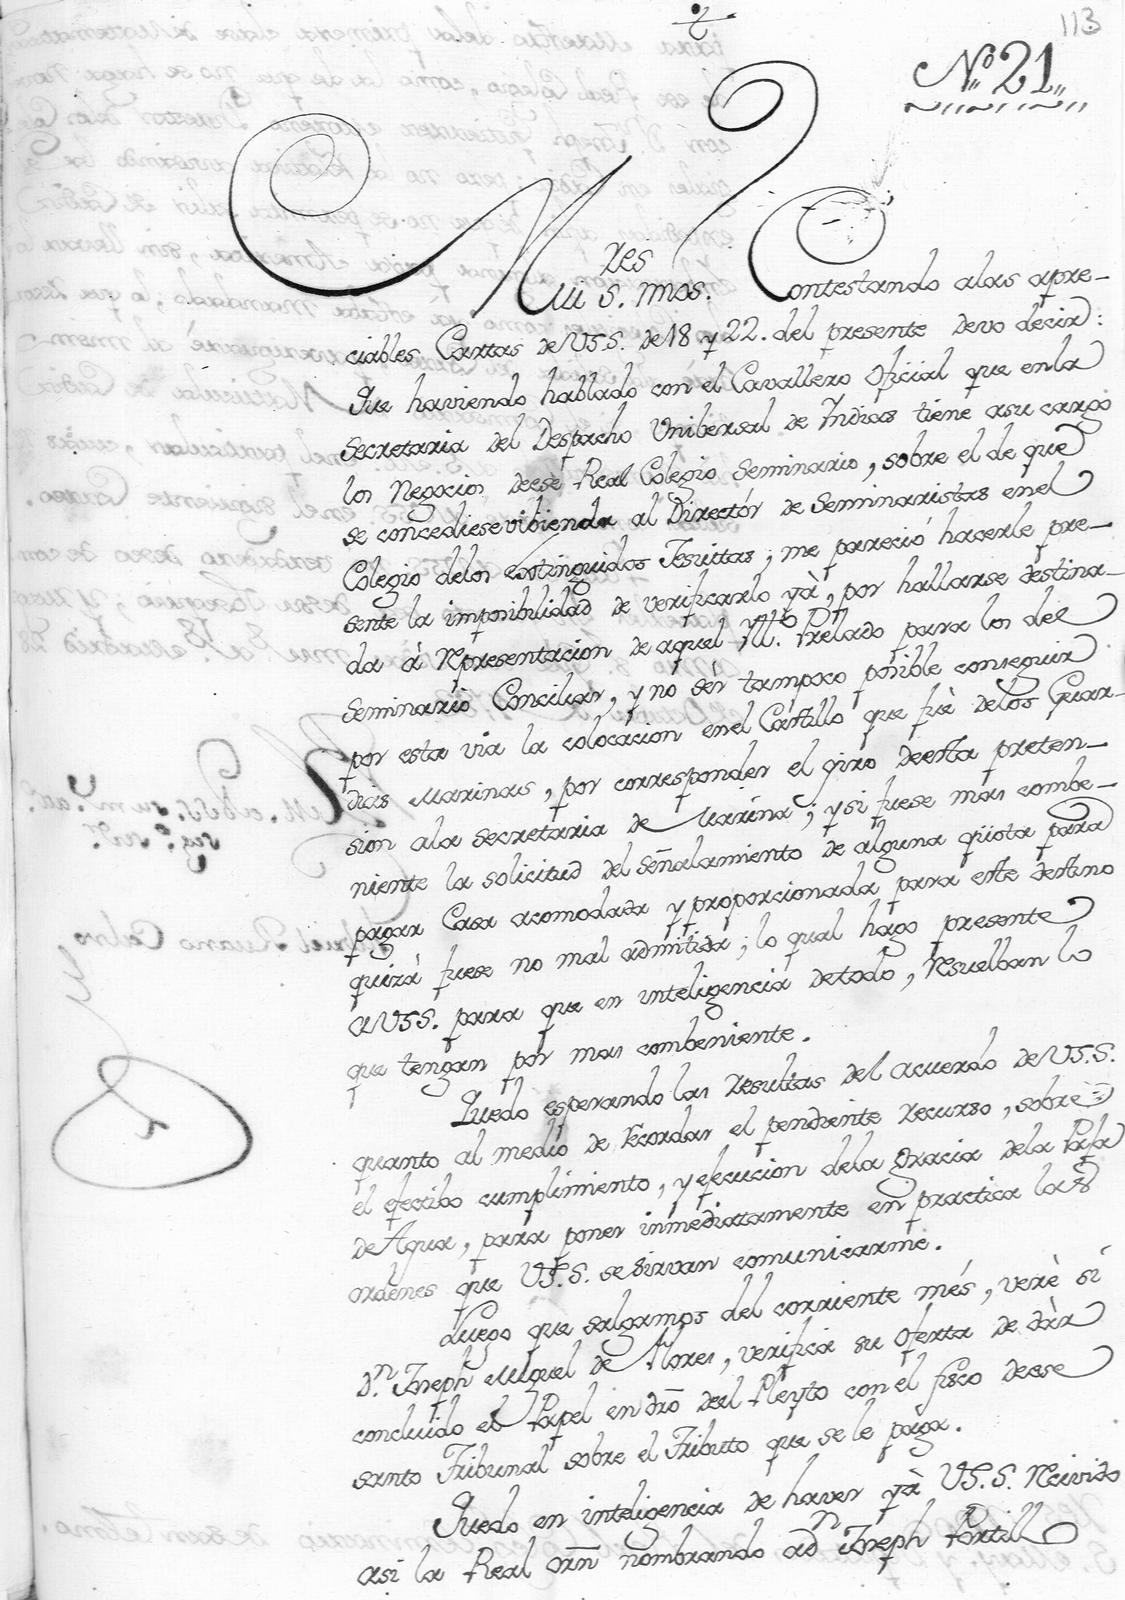 113
Nº 21
Mui S.res mos. Contestando a las apre-
ciables Cartas de VSS. de 18 y 22. del presente devo decir:
Que haviendo hablado con el Cavallero Oficial que en la
Secretaria del Despacho Unibersal de Indias tiene a su cargo
los Negocios de ese Real Colegio Seminario, sobre el de que
se concediese vibienda al Directór de Seminaristas en el
Colegio de los Extinguidos Jesuitas; me pareció hacerle pre-
sente la imposibilidad de verificarlo yà, por hallarse destina-
da à Representacion de aquel Prelado para los del
Seminario Conciliar, y nó sér tampoco posible conseguir
por esta via la colocacion en el Castillo que fuè de los Guar-
dias Marinas, por corresponder el giro de esta preten-
sion a la Secretaria de Marina; y si fuese mas combe-
niente la solicitud del señalamiento de alguna qüota para
pagar Casa acomodada y proporcionada para este destino
quizá fuese no mal admitida; lo qual hago presente
a VSS. para que en inteligencia de todo, resuelban lo
que tengan por mas combeniente.
Quedo esperando las resultas del acuerdo de VS.S.
quanto al medio de recordar el pendiente recurso, sobre
el efectibo cumplimiento, y efecucion de la Gracia de la Paja
de Agua, para poner inmediatamente en practica las
ordenes que VS.S. se sirvan comunicarme.
Luego que salgamos del corriente més, verè si
D.n Joseph Miguel de Flores, verifica su oferta de dàr
concluido el Papel en dró del Pleyto con el fisco de ese
santo Tribunal sobre el Tributo que se le paga.
Quedo en inteligencia de haver yà VS.S. Recivido
asi la Real orñ nombrando a D.n Joseph Portillo